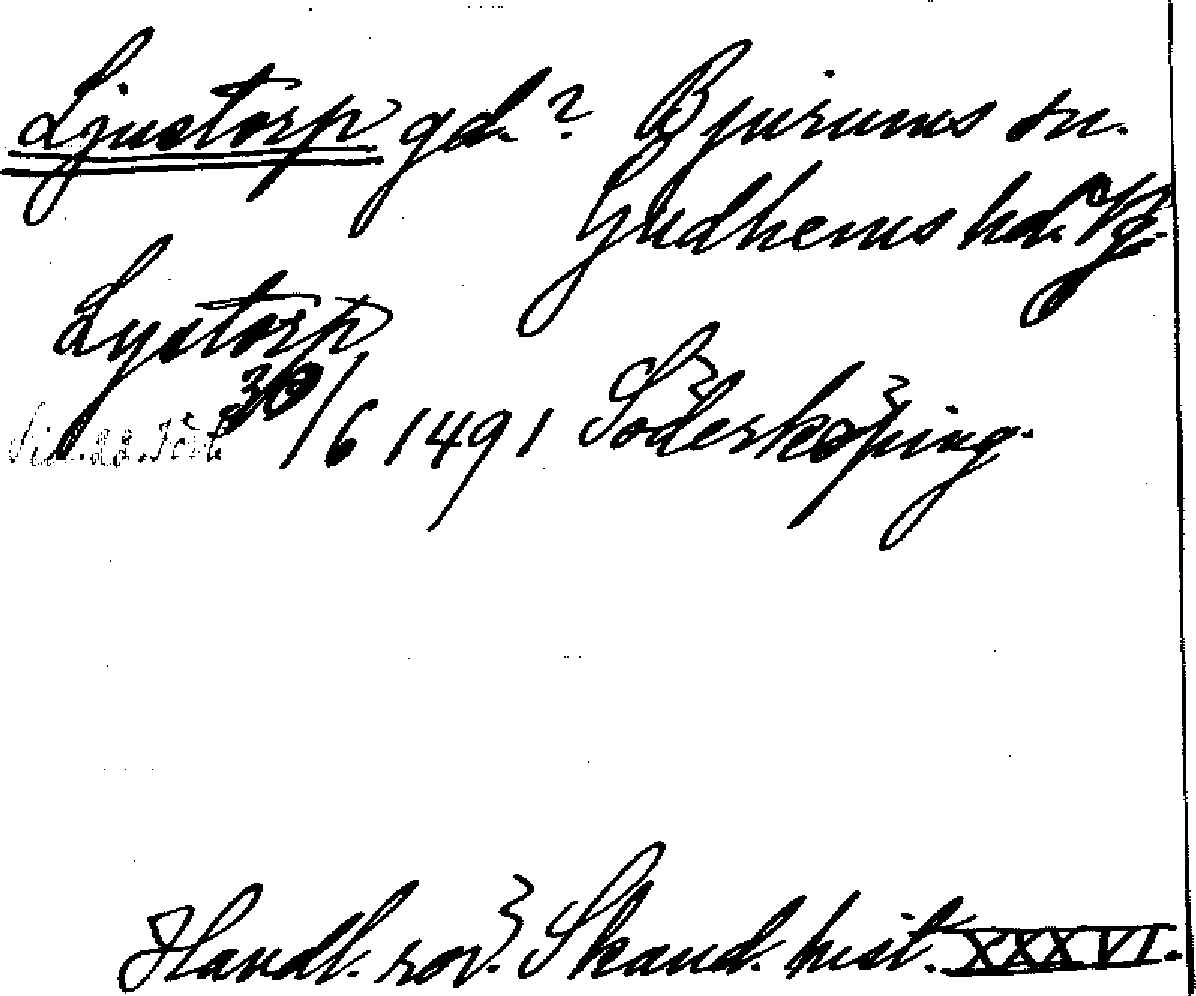 Ljustorp gd.? Bjurums sn.
Gudhems hd. Vg.
Lystorp
30/6 1491 Söderköping.
Handl. rör. Skand. hist. XXXVI.